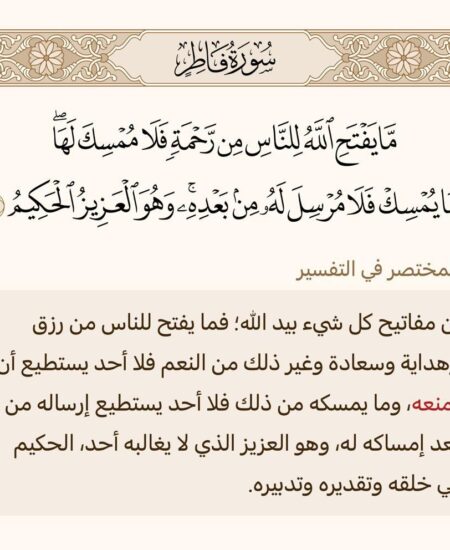 سُورَةُ فَاطِرٍ
مَّا يَفْتَحِ ٱللَّهُ لِلنَّاسِ مِن رَّحْمَةٍ فَلَا مُمْسِكَ لَهَاۖ
يُمْسِكْ فَلَا مُرْسِلَ لَهُۥ مِنۢ بَعْدِهِۦۚ وَهُوَ ٱلْعَزِيزُ ٱلْحَكِيمُ
لمختصر في التفسير
مفاتيح كل شيء بيد الله؛ فما يفتح للناس من رزق
وهداية وسعادة وغير ذلك من النعم فلا أحد يستطيع أن
منعه، وما يمسكه من ذلك فلا أحد يستطيع إرساله من
عد إمساكه له، وهو العزيز الذي لا يغالبه أحد، الحكيم
ي خلقه وتقديره وتدبيره.